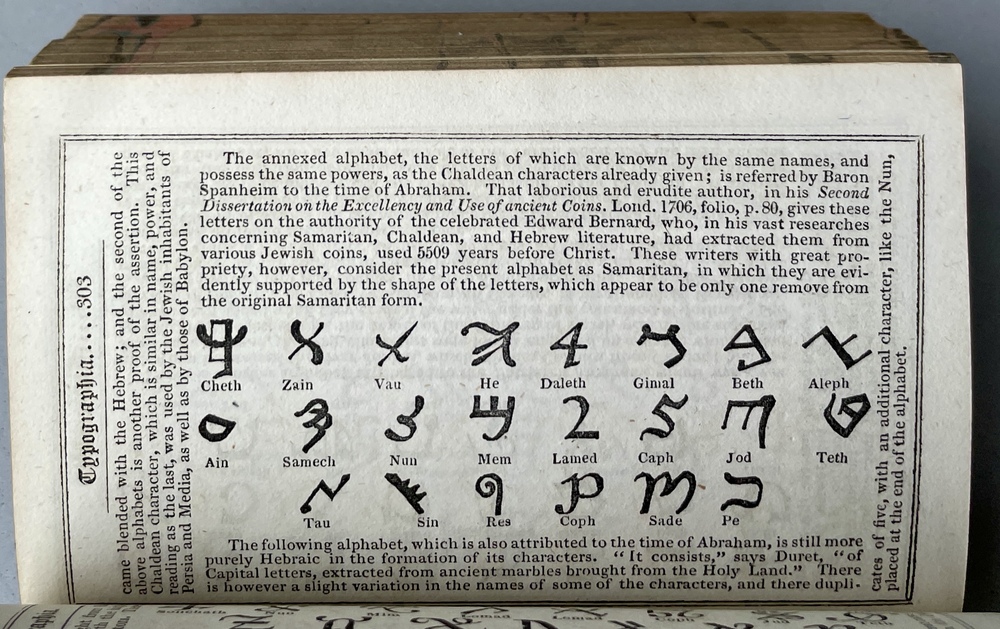 Typographia.....303
came blended with the Hebrew; and the second of the
above alphabets is another proof of the assertion. This
Chaldean character, which is similar in name, power, and
reading as the last, was used by the Jewish inhabitants of
Persia and Media, as well as by those of Babylon.
The annexed alphabet, the letters of which are known by the same names, and
possess the same powers, as the Chaldean characters already given; is referred by Baron
Spanheim to the time of Abraham. That laborious and erudite author, in his Second
Dissertation on the Excellency and Use of ancient Coins. Lond. 1706, folio, p. 80, gives these
letters on the authority of the celebrated Edward Bernard, who, in his vast researches
concerning Samaritan, Chaldean, and Hebrew literature, had extracted them from
various Jewish coins, used 5509 years before Christ. These writers with great pro-
priety, however, consider the present alphabet as Samaritan, in which they are evi-
dently supported by the shape of the letters, which appear to be only one remove from
the original Samaritan form.
Cheth Zain Vau He Daleth Gimal Beth Aleph
Ain Samech Nun Mem Lamed Caph Jod Teth
Tau Sin Res Coph Sade Pe
The following alphabet, which is also attributed to the time of Abraham, is still more
purely Hebraic in the formation of its characters. "It consists," says Duret, "of
Capital letters, extracted from ancient marbles brought from the Holy Land." There
is however a slight variation in the names of some of the characters, and there dupli-
cates of five, with an additional character, like the Nun,
placed at the end of the alphabet.